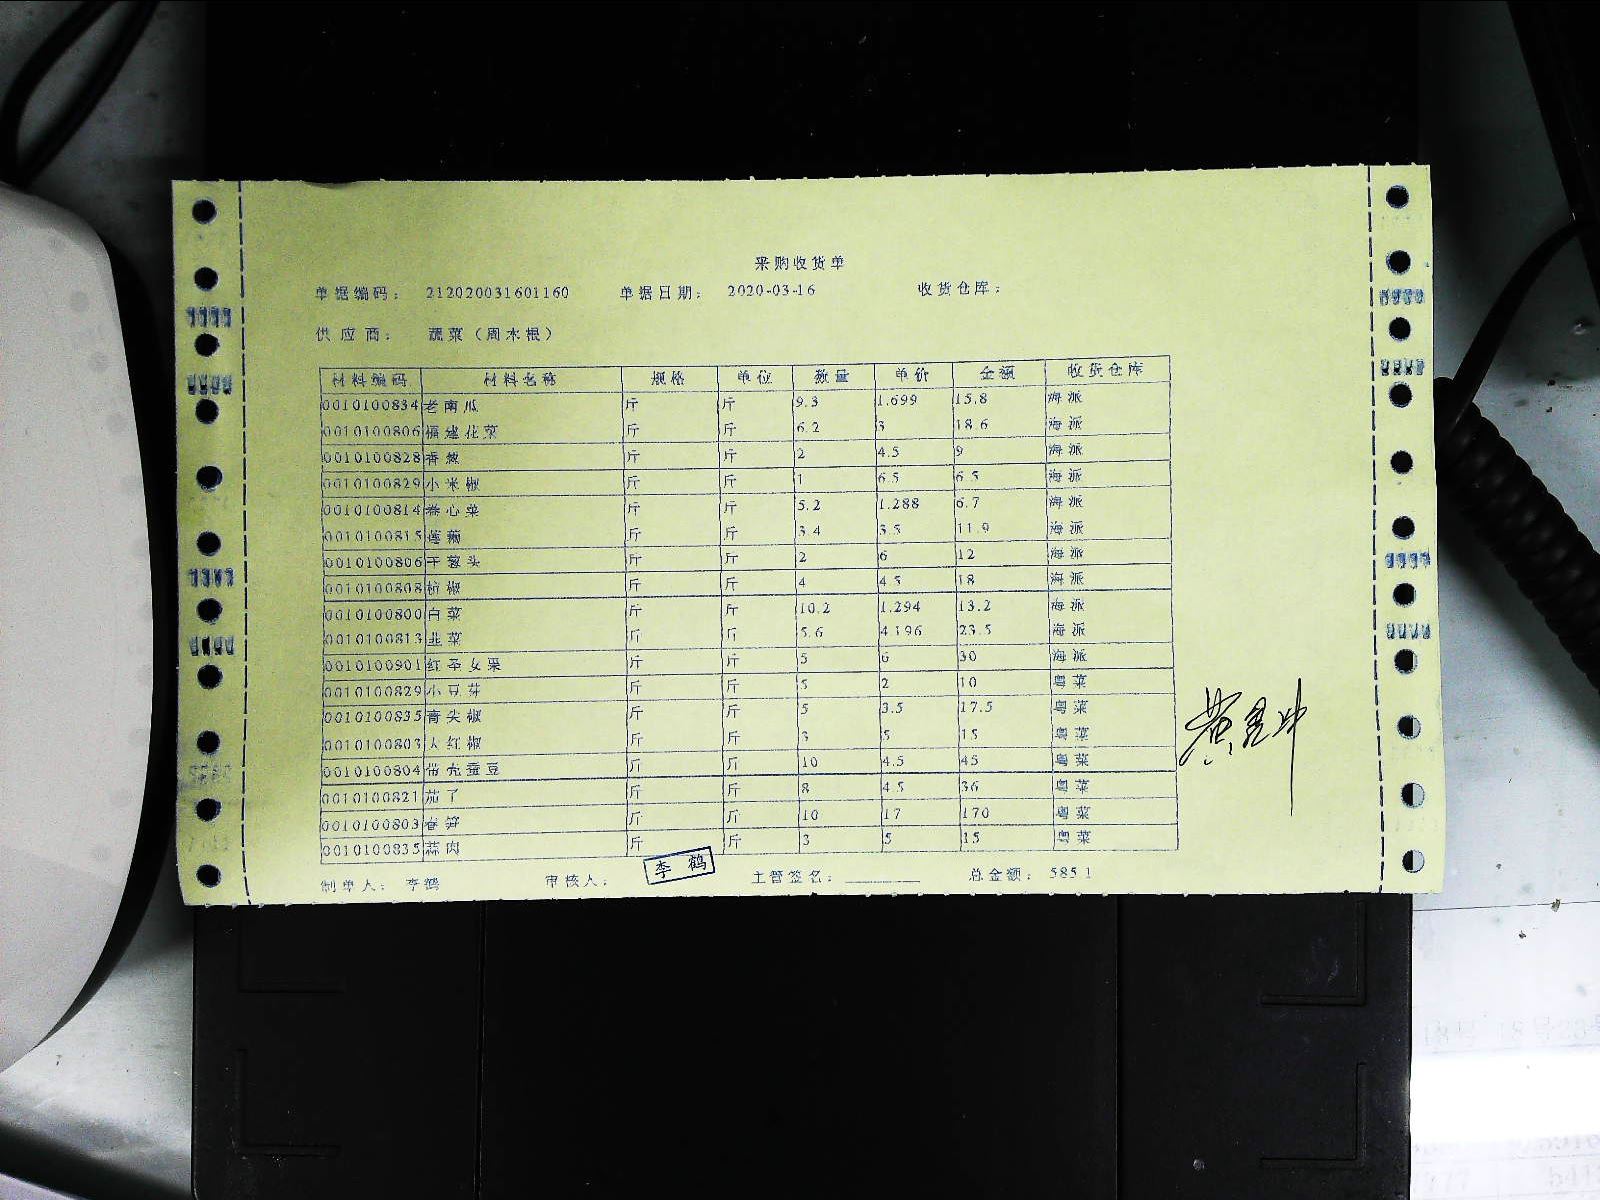 采购收货单
单据编码： 212020031601160 单据日期： 2020-03-16 收货仓库：
供应商： 蔬菜（周水根）
材料编码 材料名称 规格 单位 数量 单价 金额 收货仓库
0010100834 老南瓜 斤 斤 9.3 1.699 15.8 海派
0010100806 福建花菜 斤 斤 6.2 3 18.6 海派
0010100828 香葱 斤 斤 2 4.5 9 海派
0010100829 小米椒 斤 斤 1 6.5 6.5 海派
0010100814 卷心菜 斤 斤 5.2 1.288 6.7 海派
0010100815 莲藕 斤 斤 3.4 3.5 11.9 海派
0010100806 干葱头 斤 斤 2 6 12 海派
0010100808 杭椒 斤 斤 4 4.5 18 海派
0010100800 白菜 斤 斤 10.2 1.294 13.2 海派
0010100813 韭菜 斤 斤 5.6 4.196 23.5 海派
0010100901 红圣女果 斤 斤 5 6 30 海派
0010100829 小豆芽 斤 斤 5 2 10 粤菜
0010100835 青尖椒 斤 斤 5 3.5 17.5 粤菜
0010100803 大红椒 斤 斤 3 5 15 粤菜
0010100804 带壳蚕豆 斤 斤 10 4.5 45 粤菜
0010100821 茄子 斤 斤 8 4.5 36 粤菜
0010100803 春笋 斤 斤 10 17 170 粤菜
0010100835 蒜肉 斤 斤 3 5 15 粤菜
制单人： 李鹤 审核人： 李鹤 主管签名： 总金额： 585.1